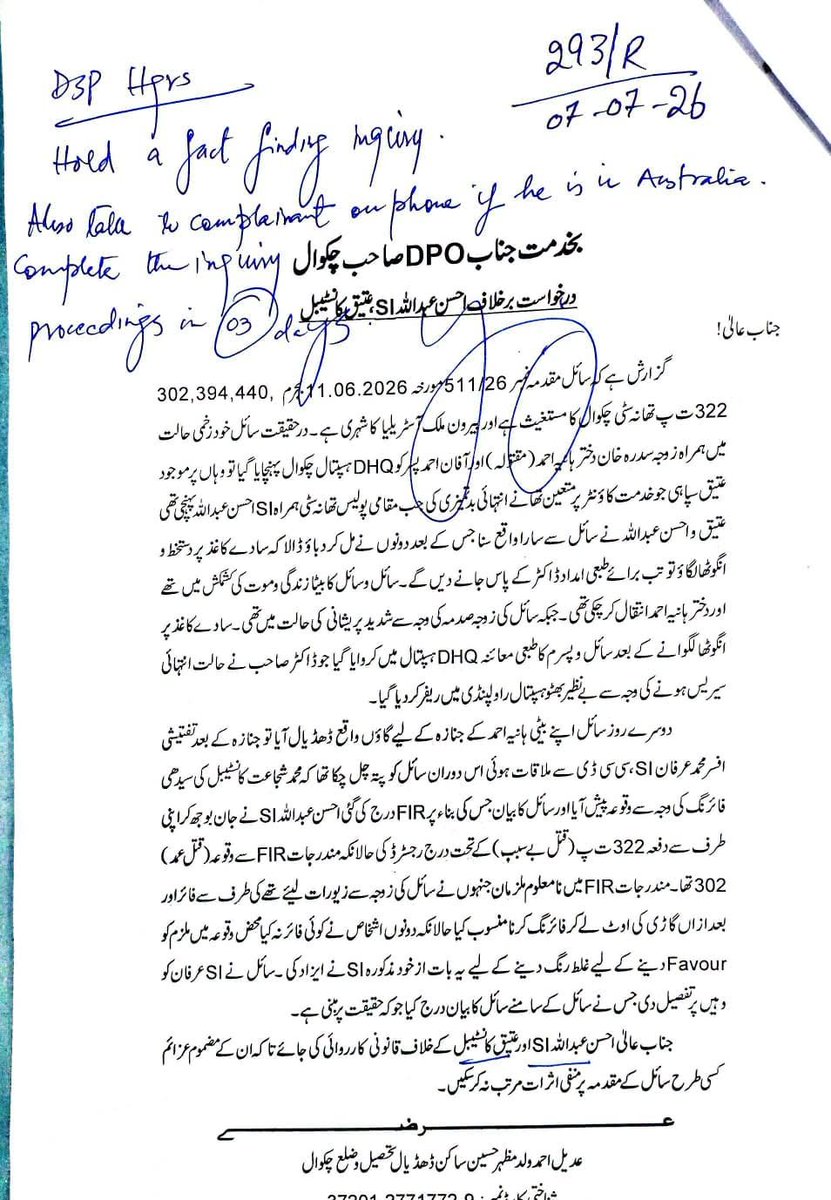 293/R
07-07-26
DSP Hqrs
Hold a fact finding inquiry.
Also talk to complainant on phone if he is in Australia.
Complete the inquiry
proceedings in 03 days
بخدمت جناب DPO صاحب چکوال
درخواست برخلاف احسن عبداللہ SI، عتیق کانسٹیبل
جناب عالی!
گزارش ہے کہ سائل مقدمہ نمبر 511/26 مورخہ 11.06.2026 بجرم 302,394,440,
322 ت پ تھانہ سٹی چکوال کا مستغیث ہے اور بیرون ملک آسٹریلیا کا شہری ہے۔ درحقیقت سائل خود زخمی حالت
میں ہمراہ زوجہ سدرہ خان دختر ہانیہ احمد (مقتولہ) اور آفان احمد پسر کو DHQ ہسپتال چکوال پہنچایا گیا تو وہاں پر موجود
عتیق سپاہی جو خدمت کاؤنٹر پر متعین تھا نے انتہائی بدتمیزی کی جب مقامی پولیس تھانہ سٹی ہمراہ SI احسن عبداللہ پہنچی تھی
عتیق و احسن عبداللہ نے سائل سے سارا واقع سنا جس کے بعد دونوں نے مل کر دباؤ ڈالا کہ سادے کاغذ پر دستخط و
انگوٹھا لگاؤ تو تب برائے طبعی امداد ڈاکٹر کے پاس جانے دیں گے۔ سائل و سائل کا بیٹا زندگی و موت کی کشمکش میں تھے
اور دختر ہانیہ احمد انتقال کر چکی تھی۔ جبکہ سائل کی زوجہ صدمہ کی وجہ سے شدید پریشانی کی حالت میں تھی۔ سادے کاغذ پر
انگوٹھا لگوانے کے بعد سائل و پسرم کا طبعی معائنہ DHQ ہسپتال میں کروایا گیا جو ڈاکٹر صاحب نے حالت انتہائی
سیریس ہونے کی وجہ سے بے نظیر بھٹو ہسپتال راولپنڈی میں ریفر کر دیا گیا۔
دوسرے روز سائل اپنے بیٹی ہانیہ احمد کے جنازہ کے لیے گاؤں واقع ڈھڈیال آیا تو جنازہ کے بعد تفتیشی
افسر محمد عرفان SI، سی سی ڈی سے ملاقات ہوئی اس دوران سائل کو پتہ چل چکا تھا کہ محمد شجاعت کانسٹیبل کی سیدھی
فائرنگ کی وجہ سے وقوعہ پیش آیا اور سائل کا بیان جس کی بناء پر FIR درج کی گئی احسن عبداللہ SI نے جان بوجھ کر اپنی
طرف سے دفعہ 322 ت پ (قتل بے سبب) کے تحت درج رجسٹرڈ کی حالانکہ مندرجات FIR سے وقوعہ (قتل عمد)
302 تھا۔ مندرجات FIR میں نامعلوم ملزمان جنہوں نے سائل کی زوجہ سے زیورات لیئے تھے کی طرف سے فائر اور
بعد ازاں گاڑی کی اوٹ لے کر فائرنگ کرنا منسوب کیا حالانکہ دونوں اشخاص نے کوئی فائر نہ کیا محض وقوعہ میں ملزم کو
Favour دینے کے لیے غلط رنگ دینے کے لیے یہ بات از خود مذکورہ SI نے ایزاد کی۔ سائل نے SI عرفان کو
وہیں پر تفصیل دی جس نے سائل کے سامنے سائل کا بیان درج کیا جو کہ حقیقت پر مبنی ہے۔
جناب عالیٰ احسن عبداللہ SI اور عتیق کانسٹیبل کے خلاف قانونی کارروائی کی جائے تاکہ ان کے مضموم عزائم
کسی طرح سائل کے مقدمہ پر منفی اثرات مرتب نہ کر سکیں۔
عرضے
عدیل احمد ولد مظہر حسین ساکن ڈھڈیال تحصیل و ضلع چکوال
شناختی کارڈ نمبر: 37201-2771772-9